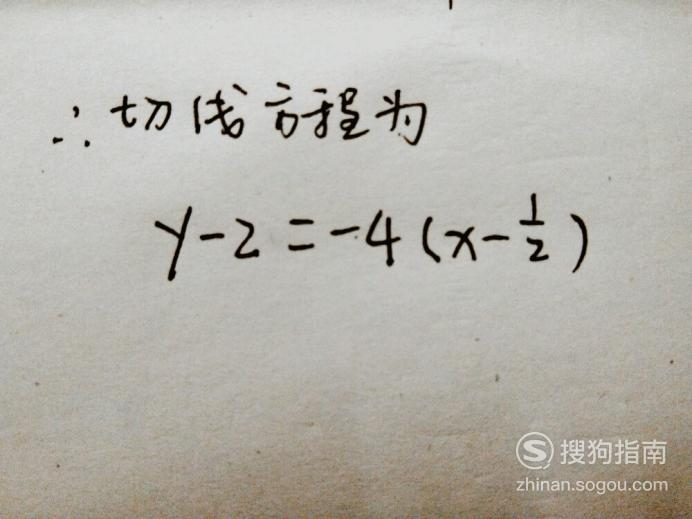 ∴切线方程为
y-2=-4(x-1/2)
搜狗指南
zhinan.sogou.com